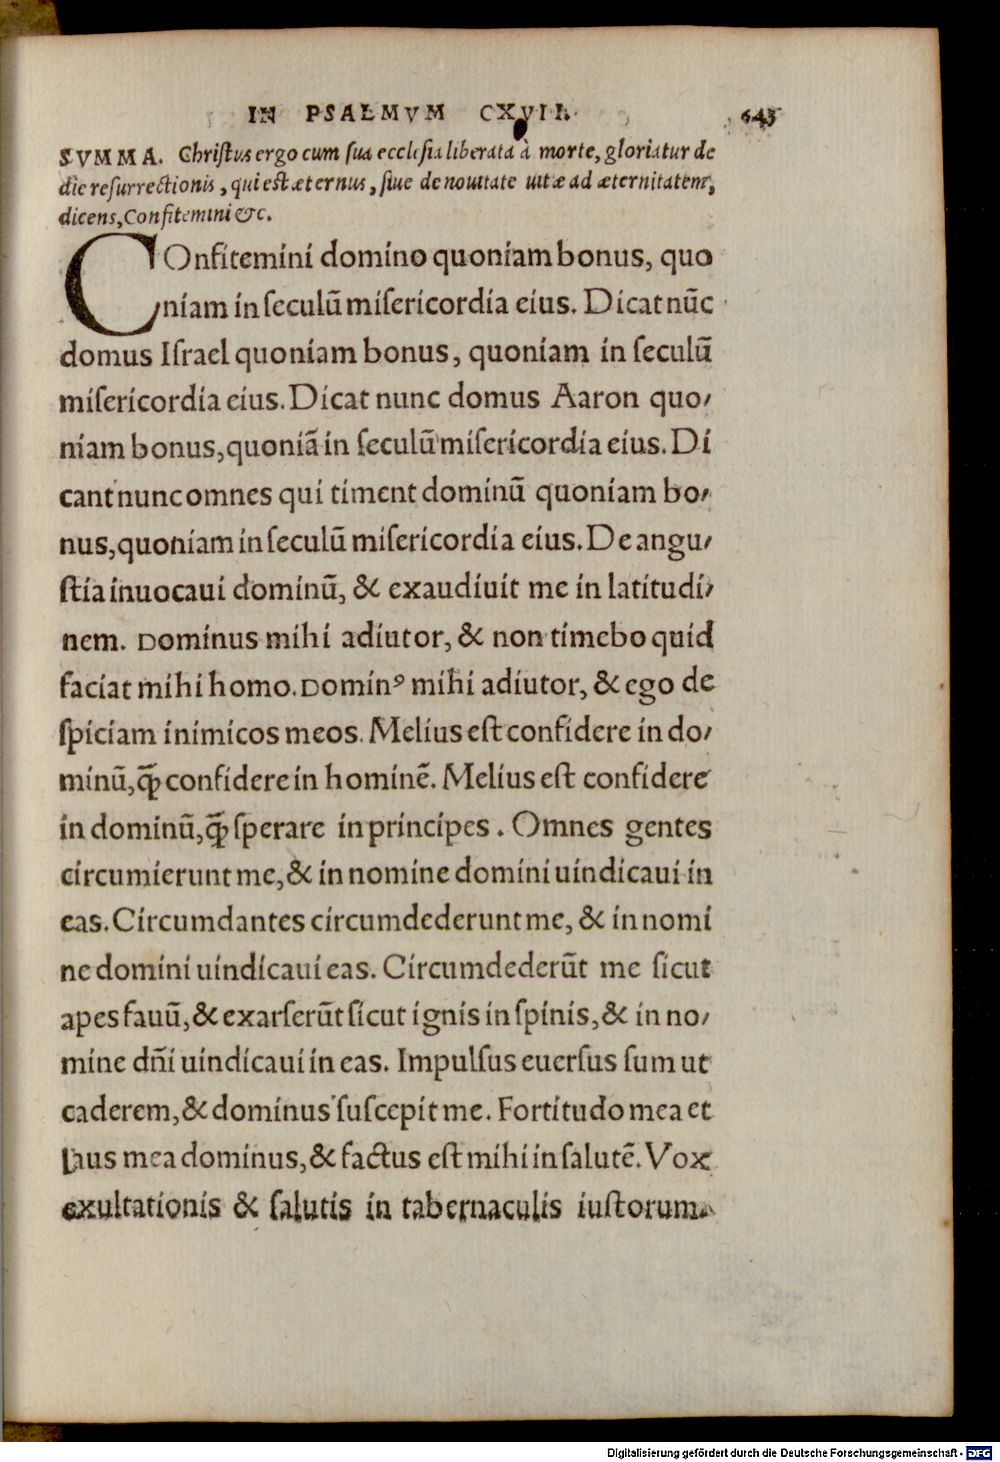 IN PSALMVM CXVII. 643
SVMMA. Christus ergo cum sua ecclesia liberata à morte, gloriatur de
die resurrectionis, qui est æternus, siue de nouitate uitæ ad æternitatem,
dicens, Confitemini &c.
COnfitemini domino quoniam bonus, quo
niam in seculū misericordia eius. Dicat nūc
domus Israel quoniam bonus, quoniam in seculū
misericordia eius. Dicat nunc domus Aaron quo⸗
niam bonus, quoniā in seculū misericordia eius. Di
cant nunc omnes qui timent dominū quoniam bo⸗
nus, quoniam in seculū misericordia eius. De angu⸗
stia inuocaui dominū, & exaudiuit me in latitudi⸗
nem. Dominus mihi adiutor, & non timebo quid
faciat mihi homo. Dominꝰ mihi adiutor, & ego de
spiciam inimicos meos. Melius est confidere in do⸗
minū, q̄ꝫ confidere in hominē. Melius est confidere
in dominū, q̄ꝫ sperare in principes. Omnes gentes
circumierunt me, & in nomine domini uindicaui in
eas. Circumdantes circumdederunt me, & in nomi
ne domini uindicaui eas. Circumdederūt me sicut
apes fauū, & exarserūt sicut ignis in spinis, & in no⸗
mine dn̄i uindicaui in eas. Impulsus euersus sum ut
caderem, & dominus suscepit me. Fortitudo mea et
laus mea dominus, & factus est mihi in salutē. Vox
exultationis & salutis in tabernaculis iustorum.
Digitalisierung gefördert durch die Deutsche Forschungsgemeinschaft - DFG